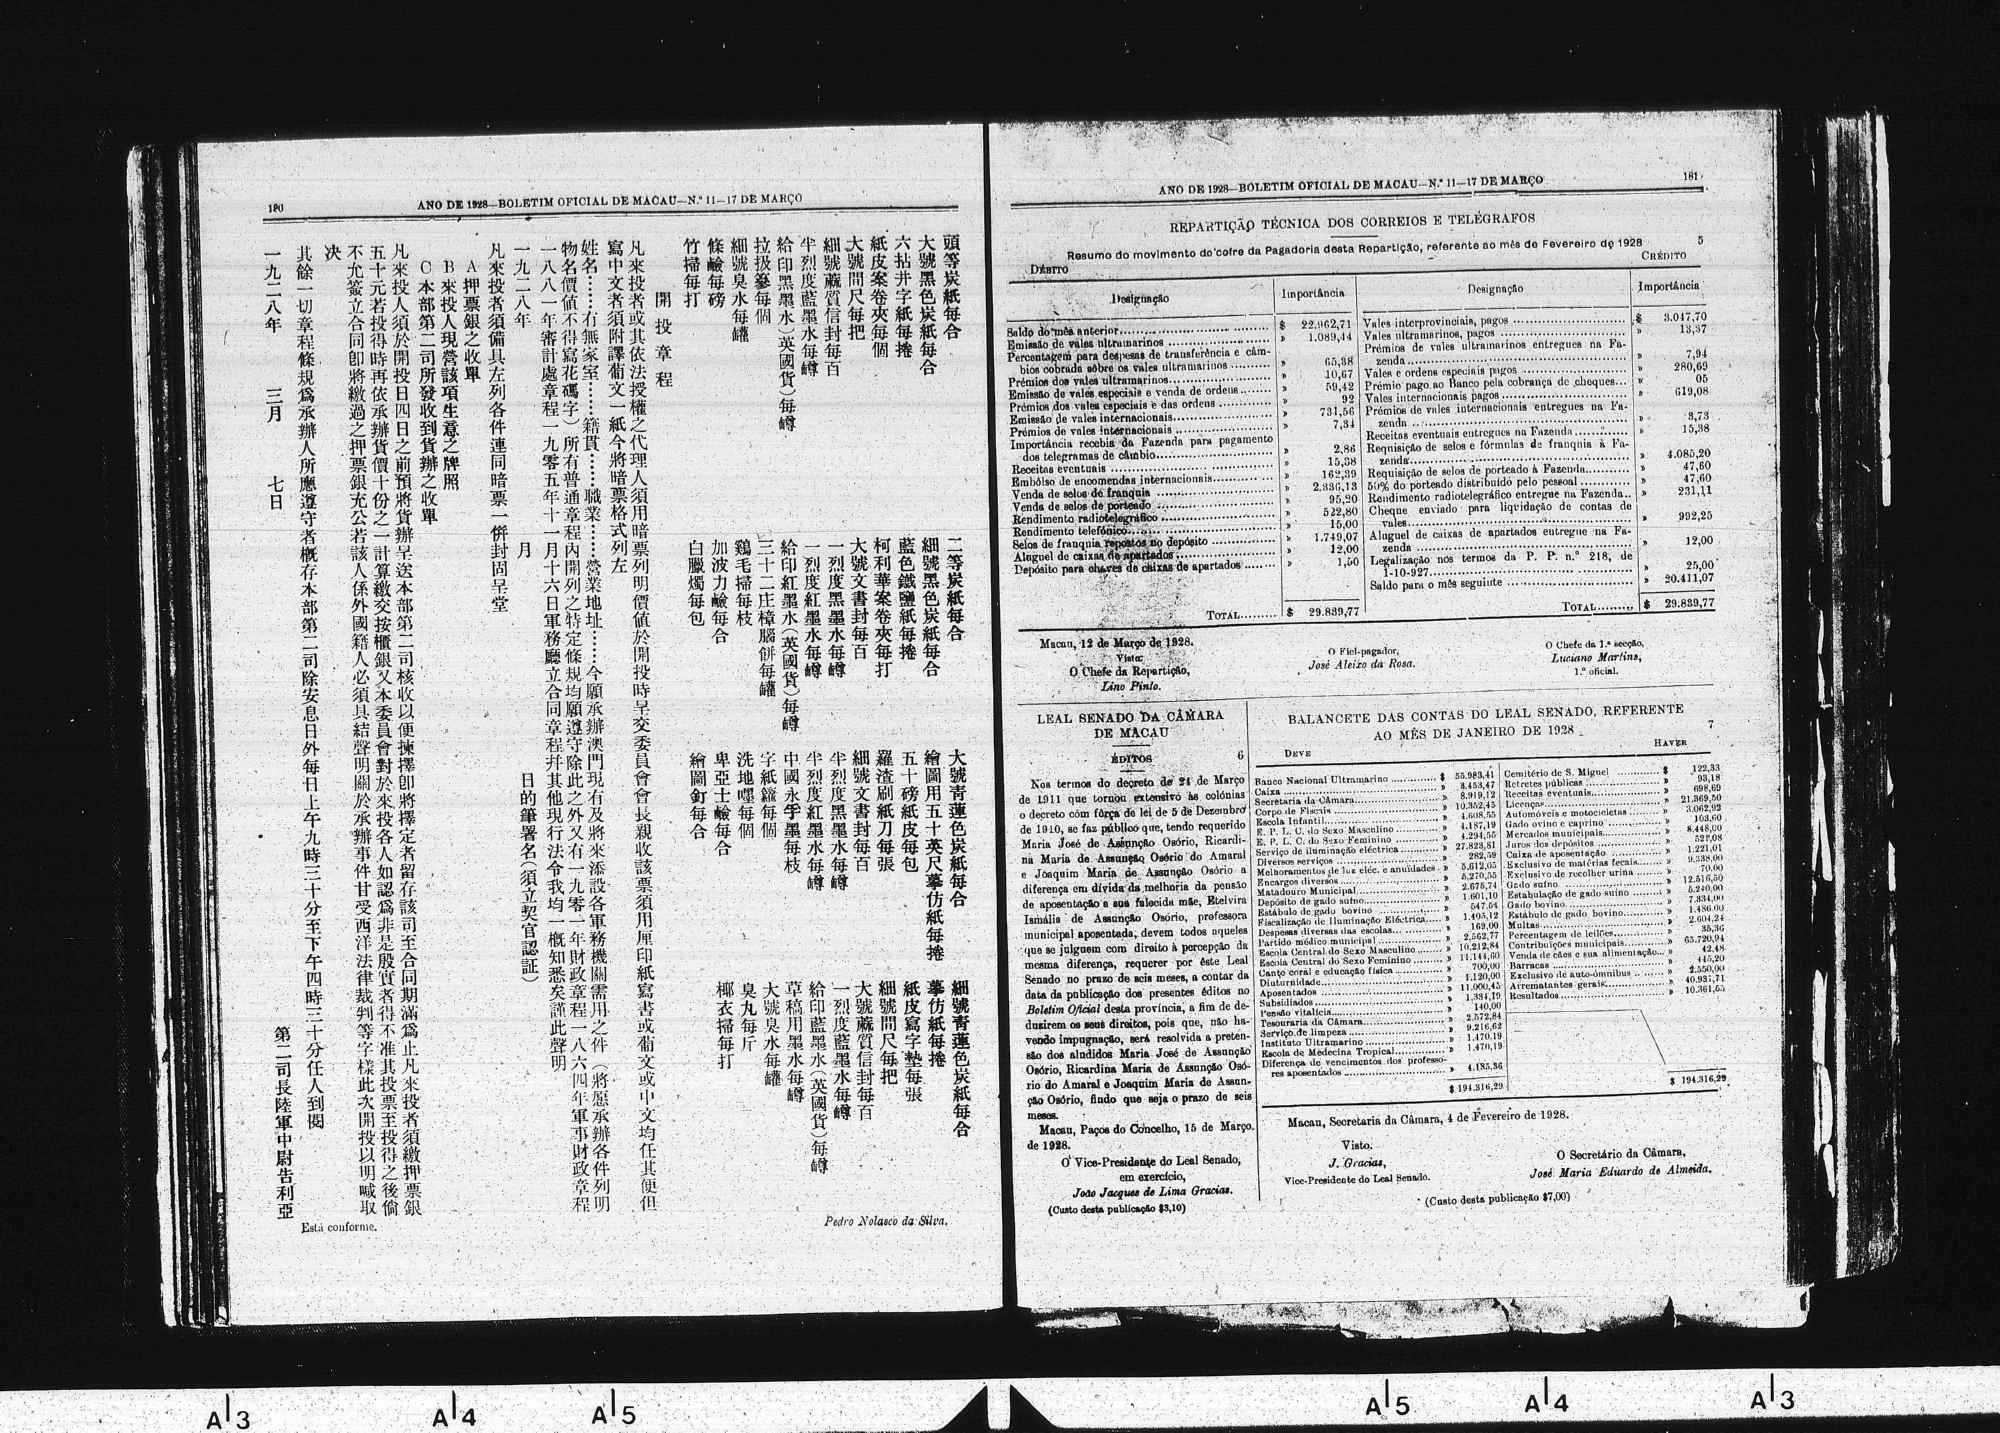 180
ANO DE 1928—BOLETIM OFICIAL DE MACAU—N.º 11—17 DE MARÇO
頭等炭紙每合
大號黑色炭紙每合
六拈井字紙每捲
紙皮案卷夾每個
大號間尺每把
細號蔴質信封每百
半烈度藍墨水每罇
給印黑墨水(英國貨)每罇
拉扱簩每個
細號臭水每罐
條鹼每磅
竹掃每打
二等炭紙每合
細號黑色炭紙每合
藍色鐵鹽紙每捲
柯利華案卷夾每打
大號文書封每百
一烈度黑墨水每罇
一烈度紅墨水每罇
給印紅墨水(英國貨)每罇
三十二庄樟腦餅每罐
鷄毛掃每枝
加波力鹼每合
白臘燭每包
大號靑蓮色炭紙每合
繪圖用五十英尺摹仿紙每捲
五十磅紙皮每包
羅渣刷紙刀每張
細號文書封每百
半烈度黑墨水每罇
半烈度紅墨水每罇
中國永孚墨每枝
字紙籮每個
洗地嘿每個
卑亞士鹼每合
繪圖釘每合
細號靑蓮色炭紙每合
摹仿紙每捲
紙皮寫字墊每張
細號間尺每把
大號蔴質信封每百
一烈度藍墨水每罇
給印藍墨水(英國貨)每罇
草稿用墨水每罇
大號臭水每罐
臭丸每斤
椰衣掃每打
開投章程
凡來投者或其依法授權之代理人須用暗票列明價値於開投時呈交委員會會長親收該票須用厘印紙寫書或葡文或中文均任其便但
寫中文者須附譯葡文一紙今將暗票格式列左
姓名……有無家室……籍貫……職業……營業地址……今願承辦澳門現有及將來添設各軍務機關需用之件(將愿承辦各件列明
物名價値不得寫花碼字)所有普通章程內開列之特定條規均願遵守除此之外又有一九零一年財政章程一八六四年軍事財政章程
一八八一年審計處章程一九零五年十一月十六日軍務廳立合同章程幷其他現行法令我均一概知悉矣謹此聲明
一九二八年 月 日的筆署名(須立契官認証)
凡來投者須備具左列各件連同暗票一併封固呈堂
A 押票銀之收單
B 來投人現營該項生意之牌照
C 本部第二司所發收到貨辦之收單
凡來投人須於開投日四日之前預將貨辦呈送本部第二司核收以便揀擇卽將擇定者留存該司至合同期滿爲止凡來投者須繳押票銀
五十元若投得時再依承辦貨價十份之一計算繳交按櫃銀又本委員會對於來投各人如認爲非是殷實者得不准其投票至投得之後倘
不允簽立合同卽將繳過之押票銀充公若該人係外國籍人必須具結聲明關於承辦事件甘受西洋法律裁判等字樣此次開投以明喊取
决
其餘一切章程條規爲承辦人所應遵守者概存本部第二司除安息日外每日上午九時三十分至下午四時三十分任人到閱
一九二八年 三月 七日
第二司長陸軍中尉告利亞
Está conforme.
Pedro Nolasco da Silva.
ANO DE 1928—BOLETIM OFICIAL DE MACAU—N.º 11—17 DE MARÇO
181
REPARTIÇÃO TÉCNICA DOS CORREIOS E TELÉGRAFOS
Resumo do movimento do cofre da Pagadoria desta Repartição, referente ao mês de Fevereiro de 1928
5
DÉBITO
CRÉDITO
Designação Importância
Saldo do mês anterior $ 22.962,71
Emissão de vales ultramarinos » 1.089,44
Percentagem para despesas de transferência e câm-
bios cobrada sôbre os vales ultramarinos » 65,38
Prémios dos vales ultramarinos » 10,67
Emissão de vales especiais e venda de ordens » 59,42
Prémios dos vales especiais e das ordens » 92
Emissão de vales internacionais » 731,56
Prémios de vales internacionais » 7,34
Importância recebia da Fazenda para pagamento
dos telegramas de câmbio » 2,86
Receitas eventuais » 15,38
Embôlso de encomendas internacionais » 162,39
Venda de selos de franquia » 2.336,13
Venda de selos de porteado » 95,20
Rendimento radiotelegráfico » 522,80
Rendimento telefónico » 15,00
Selos de franquia repostos no depósito » 1.749,07
Aluguel de caixas de apartados » 12,00
Depósito para chaves de caixas de apartados » 1,50
TOTAL $ 29.839,77
Designação Importância
Vales interprovinciais, pagos $ 3.047,70
Vales ultramarinos, pagos » 13,37
Prémios de vales ultramarinos entregues na Fa-
zenda » 7,94
Vales e ordens especiais pagos » 280,69
Prémio pago ao Banco pela cobrança de cheques » 05
Vales internacionais pagos » 619,08
Prémios de vales internacionais entregues na Fa-
zenda » 3,73
Receitas eventuais entregues na Fazenda » 15,38
Requisição de selos e fórmulas de franquia à Fa-
zenda » 4.085,20
Requisição de selos de porteado à Fazenda » 47,60
50% do porteado distribuído pelo pessoal » 47,60
Rendimento radiotelegráfico entregue na Fazenda » 231,11
Cheque enviado para liquidação de contas de
vales » 992,25
Aluguel de caixas de apartados entregue na Fa-
zenda » 12,00
Legalização nos termos da P. P. n.º 218, de
1-10-927 » 25,00
Saldo para o mês seguinte » 20.411,07
TOTAL $ 29.839,77
Macau, 12 de Março de 1928.
Visto:
O Chefe da Repartição,
Lino Pinto.
O Fiel-pagador,
José Aleixo da Rosa.
O Chefe da 1.ª secção,
Luciano Martins,
1.º oficial.
LEAL SENADO DA CÂMARA
DE MACAU
ÉDITOS
6
Nos termos do decreto de 24 de Março
de 1911 que tornou extensivo às colónias
o decreto com fôrça de lei de 5 de Dezembro
de 1910, se faz público que, tendo requerido
Maria José de Assunção Osório, Ricardi-
na Maria de Assunção Osório do Amaral
e Joaquim Maria de Assunção Osório a
diferença em dívida da melhoria da pensão
de aposentação a sua falecida mãe, Etelvira
Ismália de Assunção Osório, professora
municipal aposentada, devem todos aqueles
que se julguem com direito à percepção da
mesma diferença, requerer por êste Leal
Senado no prazo de seis meses, a contar da
data da publicação dos presentes éditos no
Boletim Oficial desta província, a fim de de-
duzirem os seus direitos, pois que, não ha-
vendo impugnação, será resolvida a preten-
são dos aludidos Maria José de Assunção
Osório, Ricardina Maria de Assunção Osó-
rio do Amaral e Joaquim Maria de Assun-
ção Osório, findo que seja o prazo de seis
meses.
Macau, Paços do Concelho, 15 de Março.
de 1928.
O Vice-Presidente do Leal Senado,
em exercício,
João Jacques de Lima Gracias.
(Custo desta publicação $3,10)
BALANCETE DAS CONTAS DO LEAL SENADO, REFERENTE
AO MÊS DE JANEIRO DE 1928
7
DEVE
HAVER
Banco Nacional Ultramarino $ 55.983,41
Caixa » 8.453,47
Secretaria da Câmara » 8.919,12
Corpo de Fiscais » 10.352,45
Escola Infantil » 4.608,55
E. P. L. C. do Sexo Masculino » 4.187,19
E. P. L. C. do Sexo Feminino » 4.294,55
Serviço de iluminação eléctrica » 27.823,81
Diversos serviços » 282,59
Melhoramentos de luz eléc. e anuidades » 5.612,05
Encargos diversos » 5.270,55
Matadouro Municipal » 2.675,74
Depósito de gado suíno » 1.601,10
Estábulo de gado bovino » 547,54
Fiscalização de Iluminação Eléctrica » 1.405,12
Despesas diversas das escolas » 169,00
Partido médico municipal » 2.562,77
Escola Central do Sexo Masculino » 10.212,84
Escola Central do Sexo Feminino » 11.144,60
Canto coral e educação física » 700,00
Diuturnidade » 1.120,00
Aposentados » 11.000,45
Subsidiados » 1.334,19
Pensão vitalícia » 140,00
Tesouraria da Câmara » 2.572,84
Serviço de limpeza » 9.216,62
Instituto Ultramarino » 1.470,19
Escola de Medecina Tropical » 1.470,19
Diferença de vencimentos dos professo-
res aposentados » 4.185,36
$ 194.316,29
Cemitério de S. Miguel $ 122,33
Retretes públicas » 93,18
Receitas eventuais » 698,69
Licenças » 21.369,50
Automóveis e motocicletas » 3.062,92
Gado ovino e caprino » 103,60
Mercados municipais » 8.448,00
Juros dos depósitos »
Caixa de aposentação » 1.221,01
Exclusivo de matérias fecais » 9.338,00
Exclusivo de recolher urina » 70,00
Gado suíno » 12.516,50
Estabulação de gado suíno » 5.240,00
Gado bovino » 7.334,00
Estábulo de gado bovino » 1.486,00
Multas » 2.604,24
Percentagem de leilões » 35,36
Contribuições municipais » 65.720,94
Venda de cães e sua alimentação » 42,48
Barracas » 445,20
Exclusivo de auto-ómnibus » 2.550,00
Arrematantes gerais » 40.931,71
Resultados » 10.361,55
$ 194.316,29
Macau, Secretaria da Câmara, 4 de Fevereiro de 1928.
Visto.
J. Gracias,
Vice-Presidente do Leal Senado.
O Secretário da Câmara,
José Maria Eduardo de Almeida.
(Custo desta publicação $7,00)
A 3
A 4
A 5
A 5
A 4
A 3